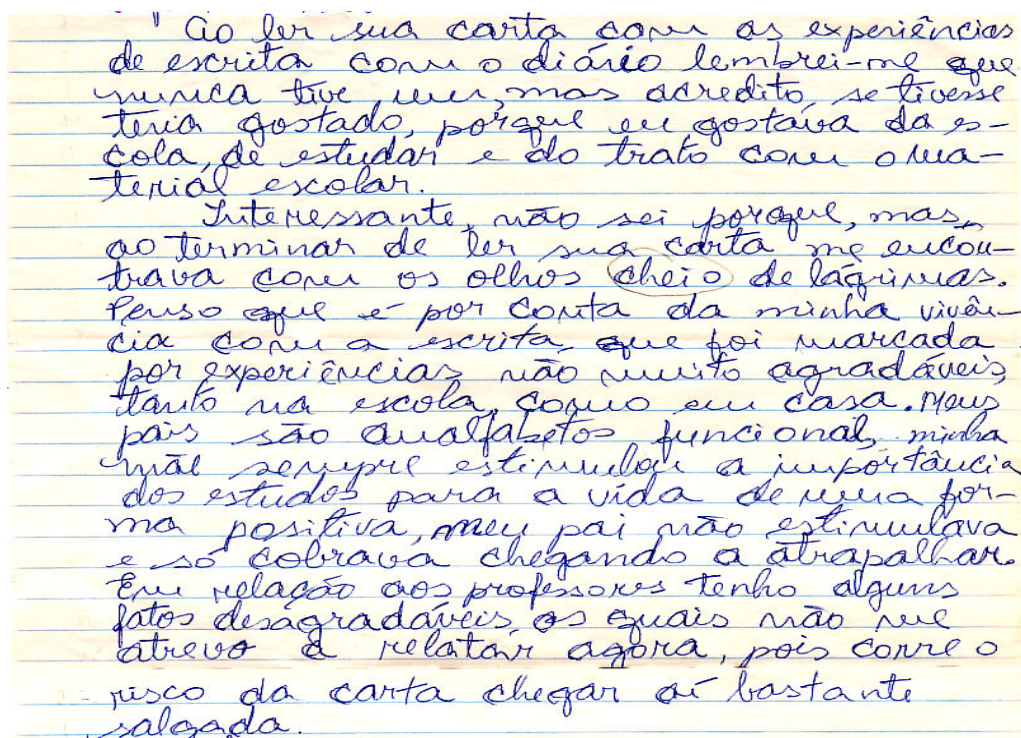 " Ao ler sua carta com as experiências
de escrita com o diário lembrei-me que
nunca tive um, mas acredito, se tivesse
teria gostado, porque eu gostava da es-
cola, de estudar e do trato com o ma-
terial escolar.
Interessante, não sei porque, mas,
ao terminar de ler sua carta me encon-
trava com os olhos cheio de lágrimas.
Penso que é por conta da minha vivên-
cia com a escrita, que foi marcada
por experiências não muito agradáveis,
tanto na escola, como em casa. Meus
pais são analfabetos funcional, minha
mãe sempre estimulou a importância
dos estudos para a vida de uma for-
ma positiva, meu pai não estimulava
e só cobrava chegando a atrapalhar.
Em relação aos professores tenho alguns
fatos desagradáveis, os quais não me
atrevo a relatar agora, pois corre o
risco da carta chegar aí bastante
salgada.